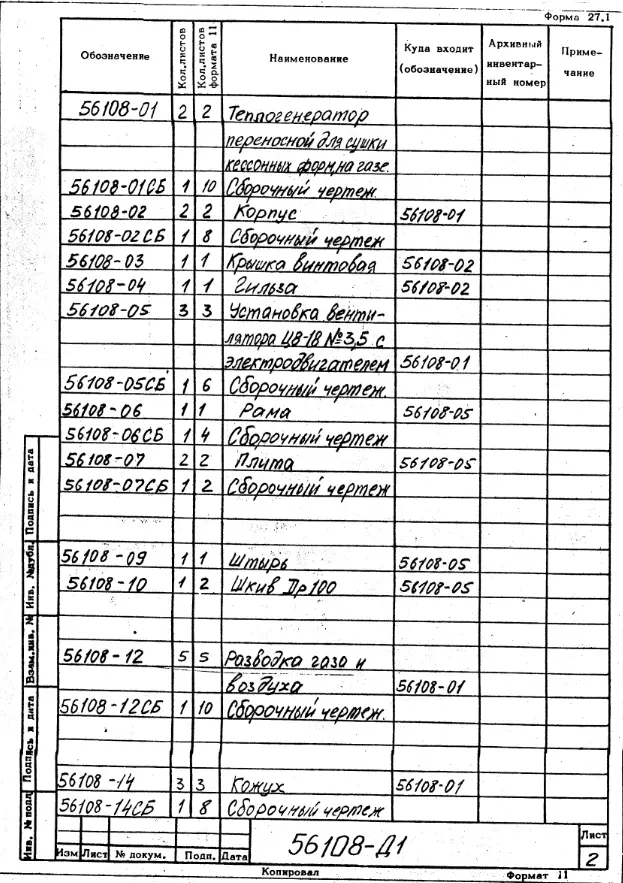 Форма 27.1
Обозначение Кол.листов Кол.листов формата 11 Наименование Куда входит (обозначение) Архивный инвентарный номер Примечание
56108-01 2 2 Теплогенератор
переносной для сушки
кессонных форм, на газе.
56108-01СБ 1 10 Сборочный чертеж.
56108-02 2 2 Корпус 56108-01
56108-02СБ 1 8 Сборочный чертеж
56108-03 1 1 Крышка винтовая 56108-02
56108-04 1 1 Гильза 56108-02
56108-05 3 3 Установка венти-
лятора Ц8-18 №3,5 с
электродвигателем 56108-01
56108-05СБ 1 6 Сборочный чертеж.
56108-06 1 1 Рама 56108-05
56108-06СБ 1 4 Сборочный чертеж
56108-07 2 2 Плита 56108-05
56108-07СБ 1 2 Сборочный чертеж
56108-09 1 1 Штырь 56108-05
56108-10 1 2 Шкив Dр100 56108-05
56108-12 5 5 Разводка газа и
воздуха 56108-01
56108-12СБ 1 10 Сборочный чертеж.
56108-14 3 3 Кожух 56108-01
56108-14СБ 1 8 Сборочный чертеж
Инв. № подл. Подпись и дата Взам.инв. № Инв. № дубл. Подпись и дата
56108-Д1
Лист
2
Изм Лист № докум. Подп. Дата
Копировал Формат 11